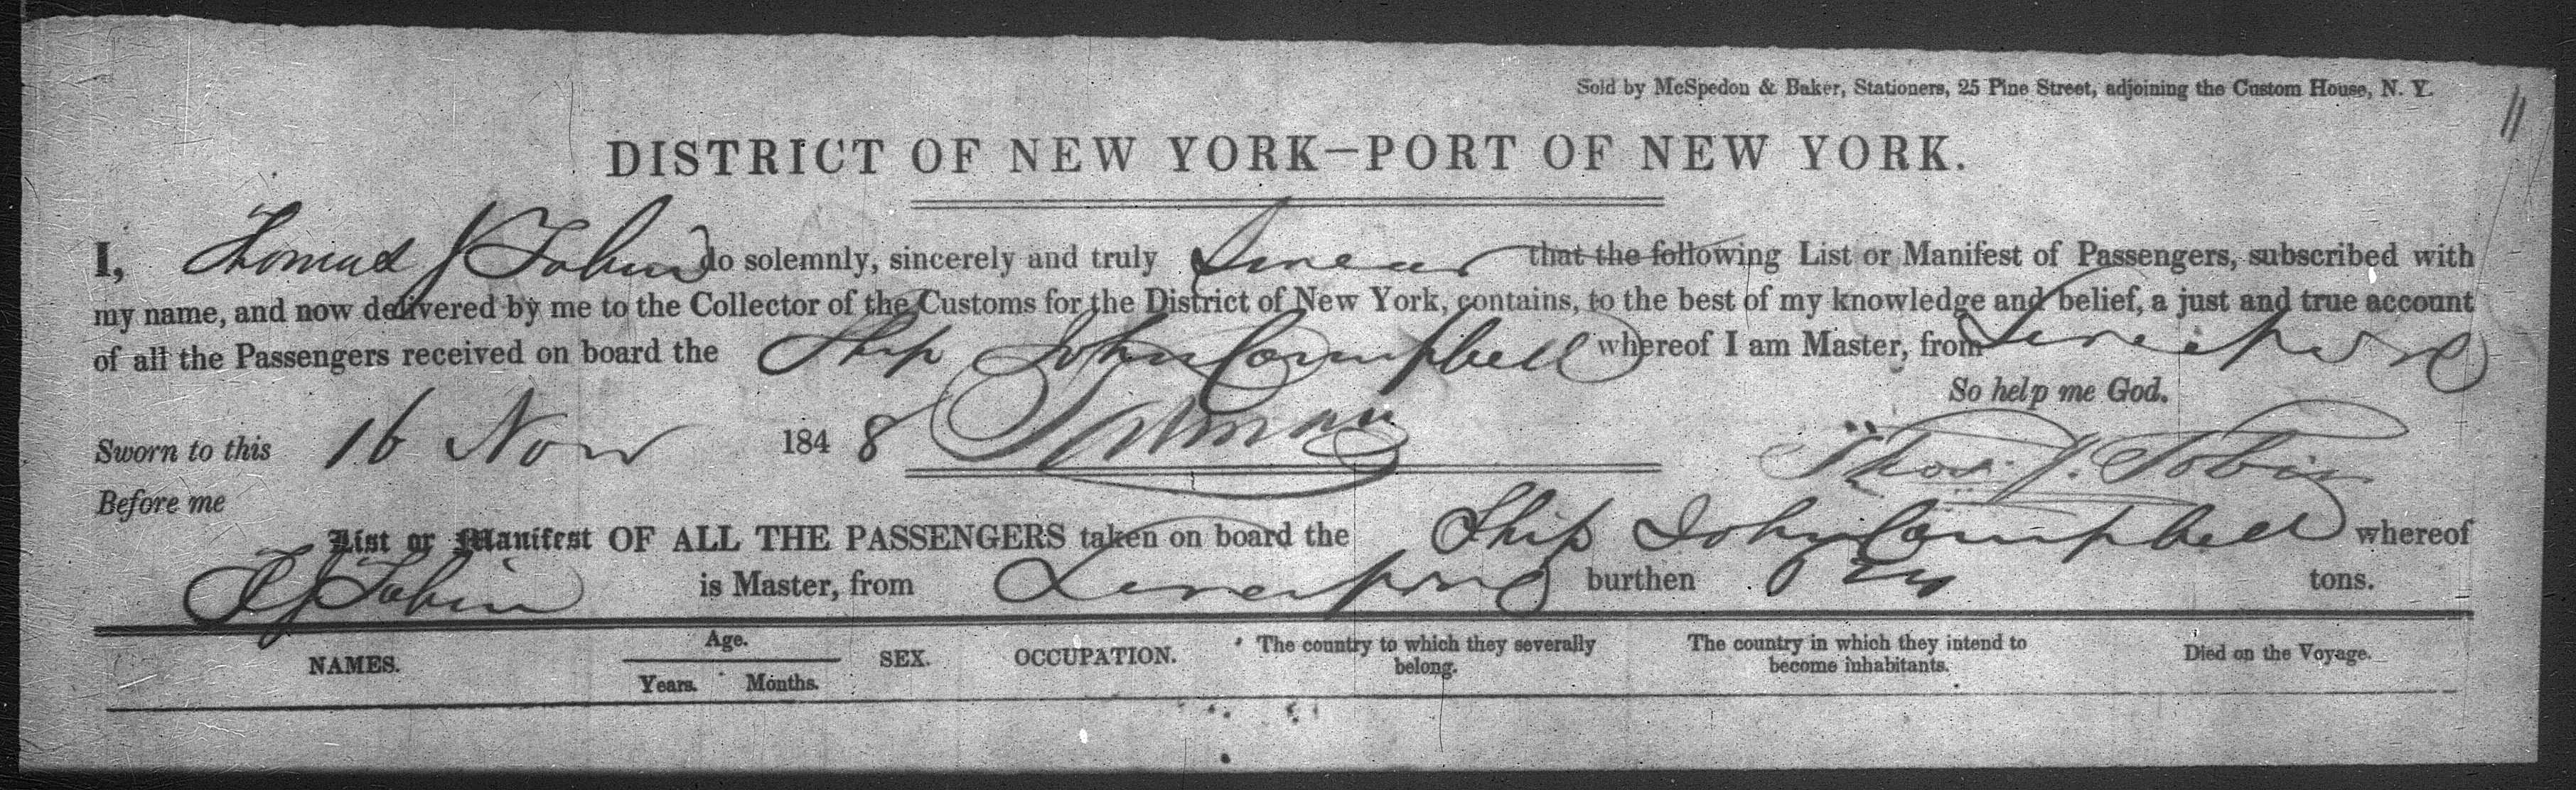 Sold by McSpedon & Baker, Stationers, 25 Pine Street, adjoining the Custom House, N. Y.
11
DISTRICT OF NEW YORK—PORT OF NEW YORK.
I, Thomas J Tobin do solemnly, sincerely and truly Swear that the following List or Manifest of Passengers, subscribed with
my name, and now delivered by me to the Collector of the Customs for the District of New York, contains, to the best of my knowledge and belief, a just and true account
of all the Passengers received on board the Ship John Campbell whereof I am Master, from Liverpool
So help me God.
Sworn to this 16 Nov 1848 Thos. J. Tobin
Before me
List or Manifest OF ALL THE PASSENGERS taken on board the Ship John Campbell whereof
T J Tobin is Master, from Liverpool burthen tons.
NAMES. Age. SEX. OCCUPATION. The country to which they severally belong. The country in which they intend to become inhabitants. Died on the Voyage.
Years. Months.